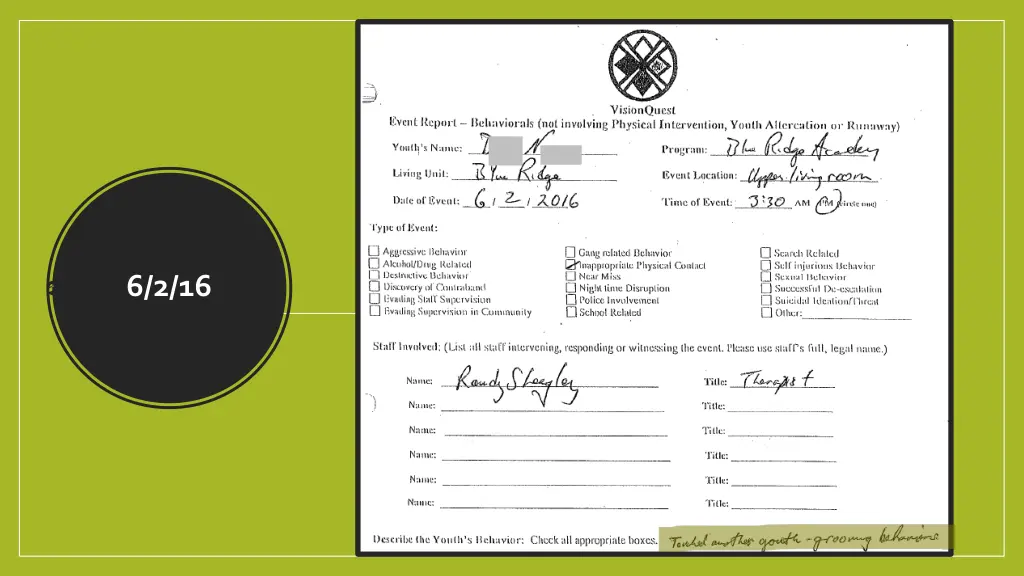 6/2/16
VisionQuest
Event Report – Behaviorals (not involving Physical Intervention, Youth Altercation or Runaway)
Youth's Name: D N Program: Blue Ridge Academy
Living Unit: Blue Ridge Event Location: Upper living room
Date of Event: 6 / 2 / 2016 Time of Event: 3:30 AM PM (circle one)
Type of Event:
Aggressive Behavior Gang related Behavior Search Related
Alcohol/Drug Related Inappropriate Physical Contact Self injurious Behavior
Destructive Behavior Near Miss Sexual Behavior
Discovery of Contraband Night time Disruption Successful De-escalation
Evading Staff Supervision Police Involvement Suicidal Ideation/Threat
Evading Supervision in Community School Related Other:
Staff Involved: (List all staff intervening, responding or witnessing the event. Please use staff's full, legal name.)
Name: Randy Title: Therapist
Name: Title:
Name: Title:
Name: Title:
Name: Title:
Name: Title:
Describe the Youth's Behavior: Check all appropriate boxes. Touched another youth - grooming behaviors